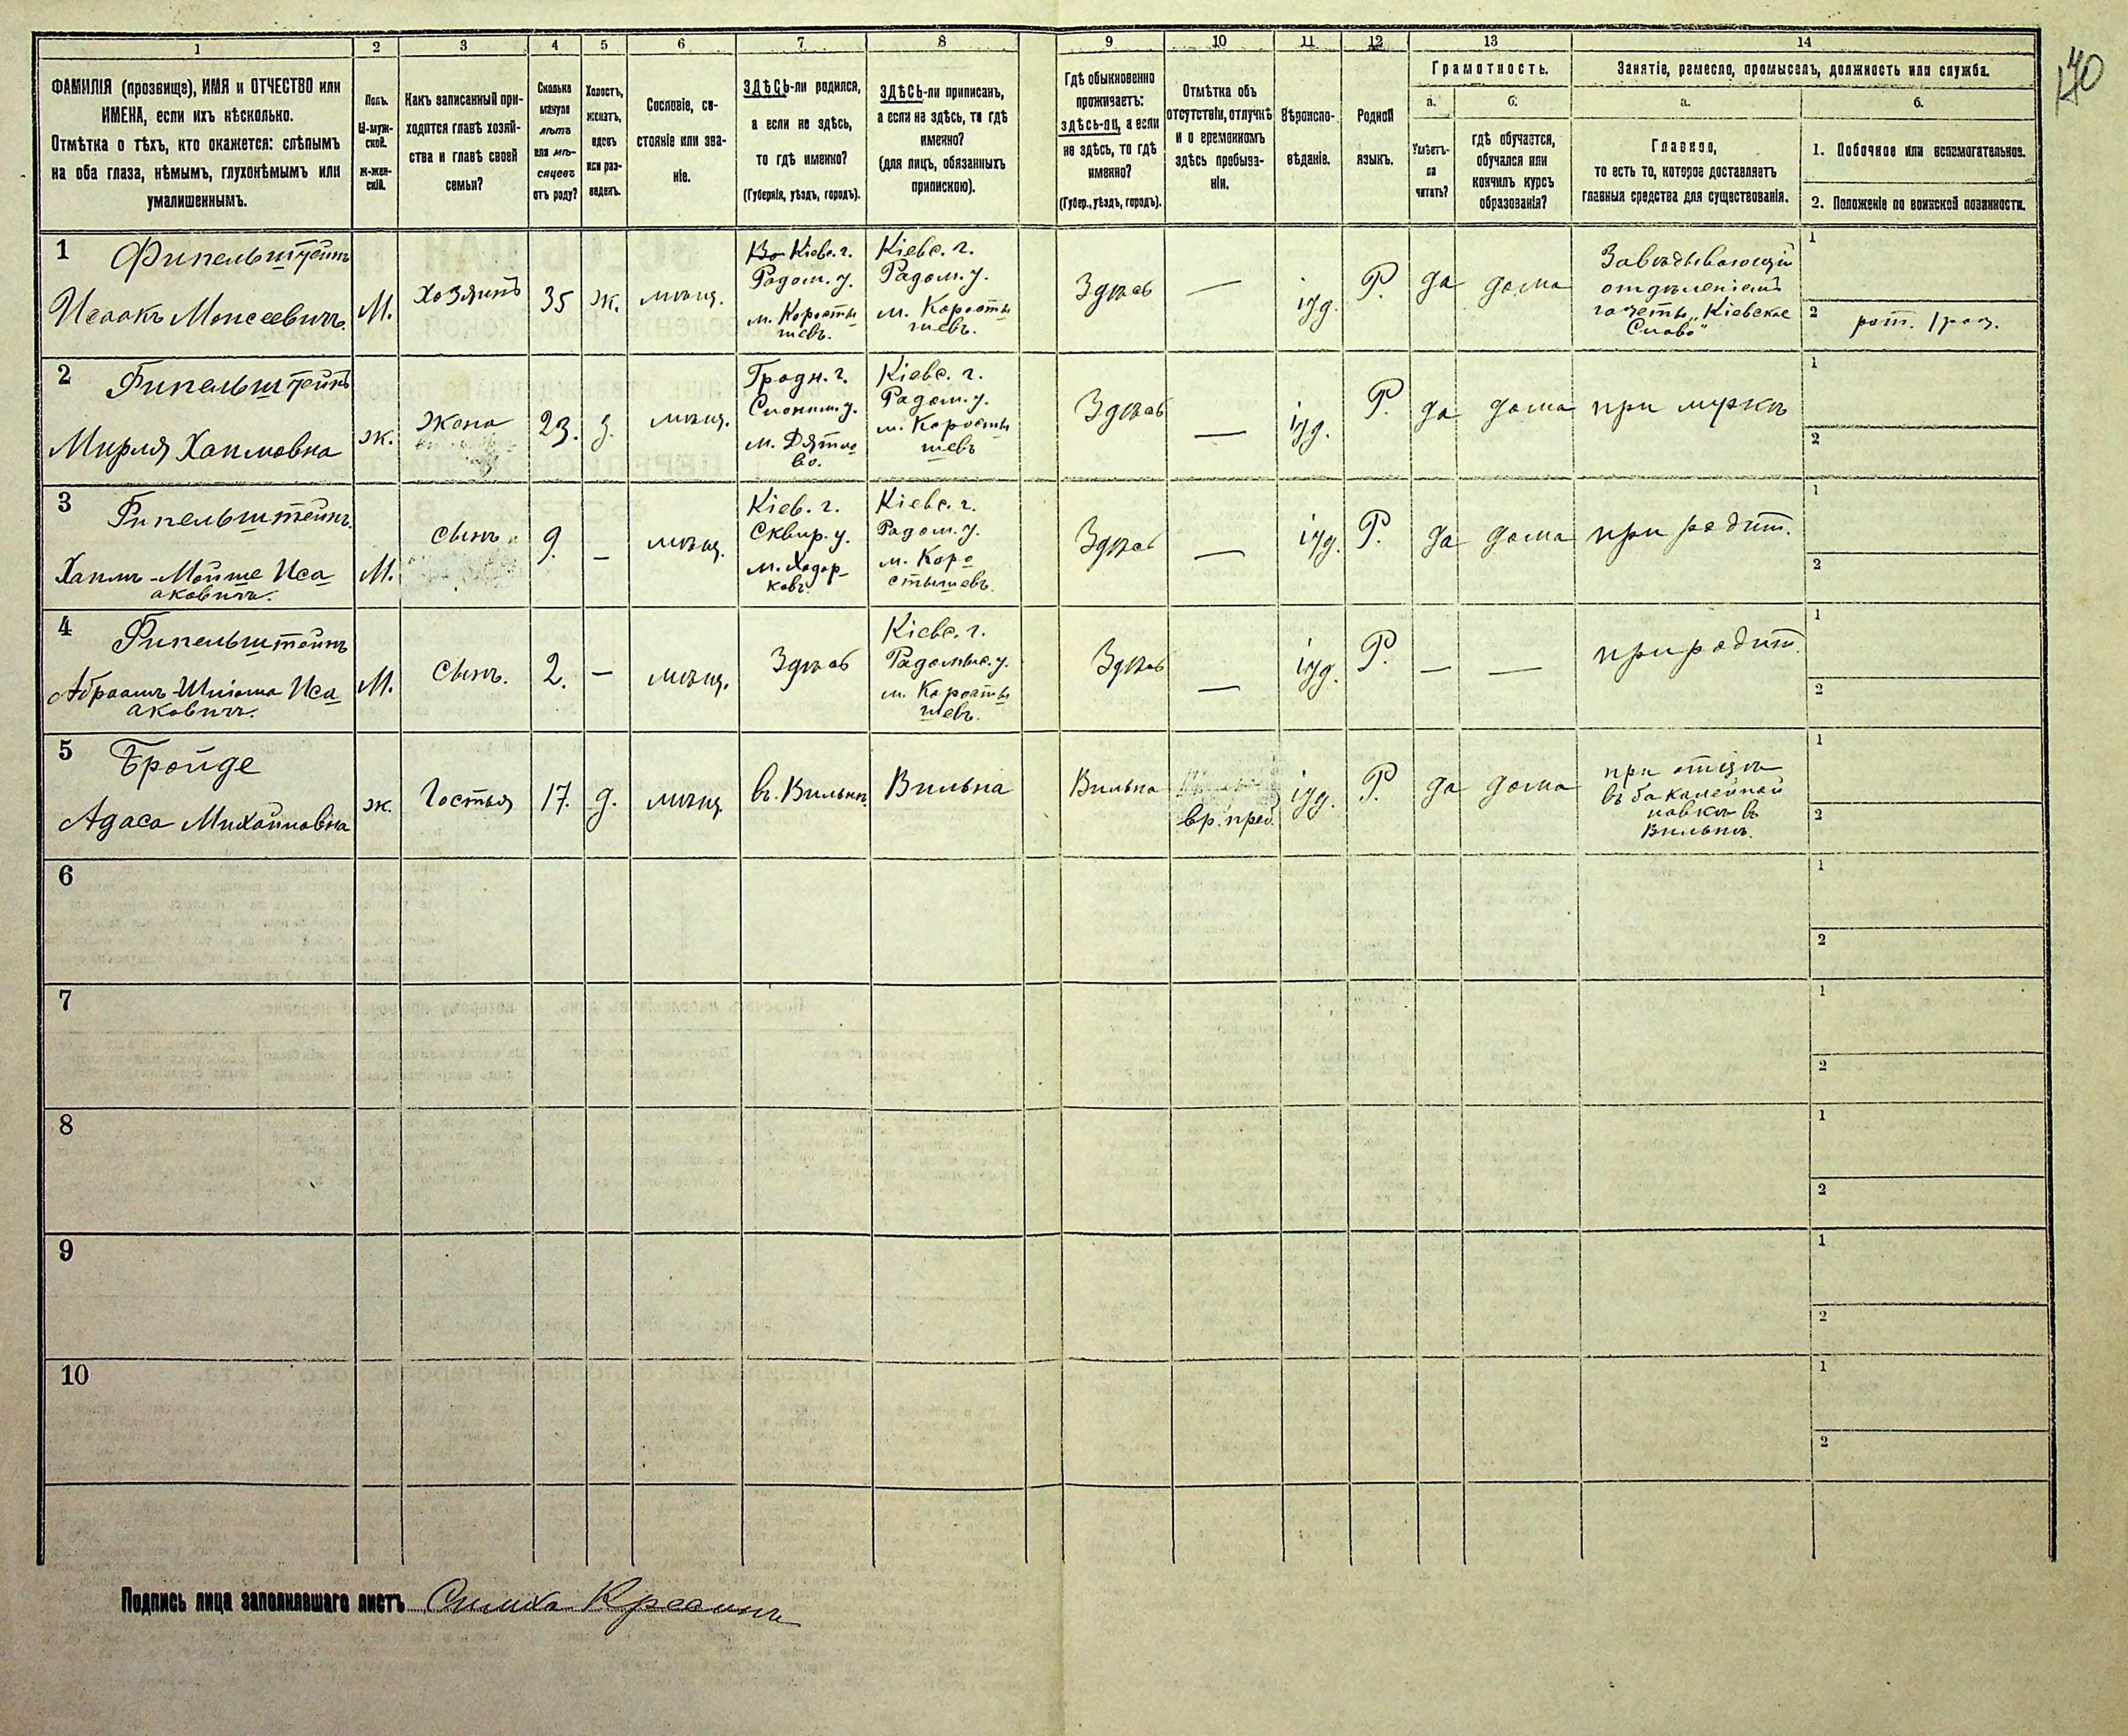 170
1 2 3 4 5 6 7 8 9 10 11 12 13 14
ФАМИЛІЯ (прозвище), ИМЯ и ОТЧЕСТВО или
ИМЕНА, если ихъ нѣсколько.
Отмѣтка о тѣхъ, кто окажется: слѣпымъ
на оба глаза, нѣмымъ, глухонѣмымъ или
умалишеннымъ.
Полъ.
М-муж-
ской.
ж-жен-
скій.
Какъ записанный при-
ходится главѣ хозяй-
ства и главѣ своей
семьи?
Сколько
минуло
лѣтъ
или мѣ-
сяцевъ
отъ роду?
Холостъ,
женатъ,
вдовъ
или раз-
веденъ.
Сословіе, со-
стояніе или зва-
ніе.
ЗДѢСЬ-ли родился,
а если не здѣсь,
то гдѣ именно?
(Губернія, уѣздъ, городъ).
ЗДѢСЬ-ли приписанъ,
а если не здѣсь, то гдѣ
именно?
(для лицъ, обязанныхъ
припискою).
Гдѣ обыкновенно
проживаетъ:
здѣсь-ли, а если
не здѣсь, то гдѣ
именно?
(Губер., уѣздъ, городъ).
Отмѣтка объ
отсутствіи, отлучкѣ
и о временномъ
здѣсь пребыва-
ніи.
Вѣроиспо-
вѣданіе.
Родной
языкъ.
Грамотность.
а.
Умѣетъ-
ли
читать?
б.
гдѣ обучается,
обучался или
кончилъ курсъ
образованія?
Занятіе, ремесло, промыселъ, должность или служба.
а.
Главное,
то есть то, которое доставляетъ
главныя средства для существованія.
б.
1. Побочное или вспомогательное.
2. Положеніе по воинской повинности.
1
Финельштейнъ
Исаакъ Моисеевичъ.
М.
Хозяинъ
35
ж.
мѣщ.
Кіевс. г.
Радом. у.
м. Коросты
шевъ.
Кіевс. г.
Радом. у.
м. Коросты
шевъ.
Здѣсь
—
іуд.
Р.
да
дома
Завѣдывающій
отдѣленіемъ
газеты „Кіевское
Слово"
1
2
рат. 1 раз.
2
Финельштейнъ
Мирля Хаимовна
ж.
Жена
23.
з.
мѣщ.
Гродн. г.
Слоним. у.
м. Дятло
во.
Кіевс. г.
Радом. у.
м. Коросты
шевъ
Здѣсь
—
іуд.
Р.
да
дома
при мужѣ
1
2
3
Финельштейнъ.
Хаимъ-Мойше Иса
аковичъ.
М.
Сынъ
9.
—
мѣщ.
Кіев. г.
Сквир. у.
м. Ходор-
ковъ.
Кіевс. г.
Радом. у.
м. Коро
стышевъ.
Здѣсь
—
іуд.
Р.
да
дома
при родит.
1
2
4
Финельштейнъ
Абраамъ-Шліома Иса
аковичъ.
М.
Сынъ.
2.
—
мѣщ.
Здѣсь
Кіевс. г.
Радомыс. у.
м. Коросты
шевъ.
Здѣсь
—
іуд.
Р.
—
—
при родит.
1
2
5
Бройде
Адаса Михайловна
ж.
Гостья
17.
д.
мѣщ.
въ. Вильнѣ.
Вильна
Вильна
вр. преб.
іуд.
Р.
да
дома
при отцѣ
въ бакалейной
лавкѣ въ
Вильнѣ.
1
2
6
1
2
7
1
2
8
1
2
9
1
2
10
1
2
Подпись лица заполнявшаго листъ Симха